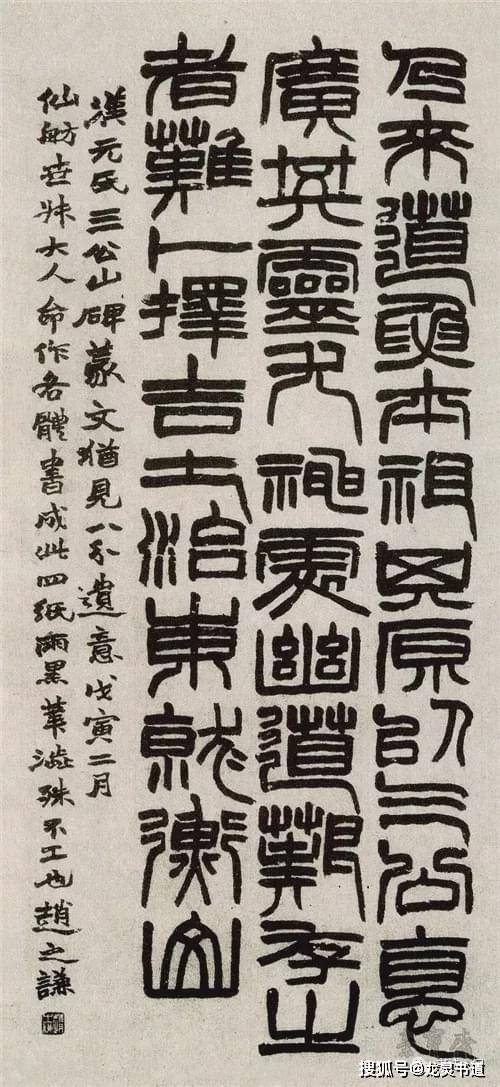 㠯來道要本祖其原㠯三公惪
廣其靈尤神處幽道艱存之
者難卜擇吉土治東就衡山
漢元氏三公山碑篆文猶見八分遺意戊寅二月
仙舫世叔大人命作各體書成此四紙筆澀殊不工也趙之謙
搜狐号@龙灵书道